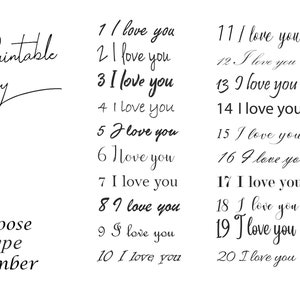 1 I love you
2 I love you
3 I love you
4 I love you
5 I love you
6 I love you
7 I love you
8 I love you
9 I love you
10 I love you
11 I love you
12 I love you
13 I love you
14 I love you
15 I love you
16 I love you
17 I love you
18 I love you
19 I love you
20 I love you